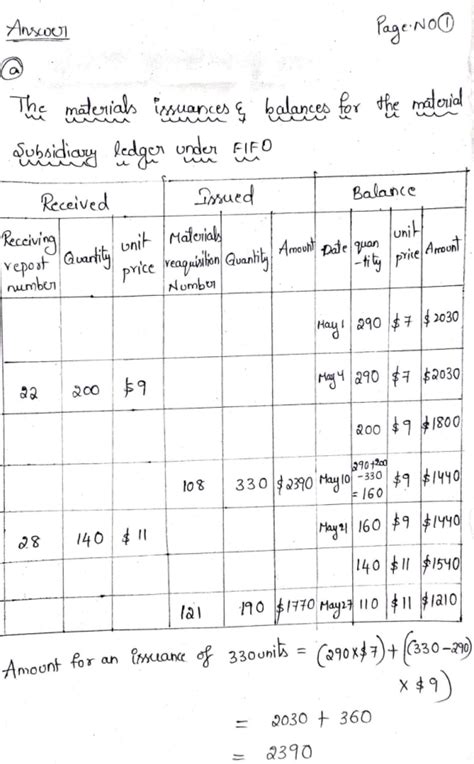 Answer
Page.NO①
ⓐ
The materials issuances & balances for the material
subsidiary ledger under FIFO
Received Issued Balance
Receiving report number Quantity unit price Materials reaquisition Number Quantity Amount Date quan-tity unit price Amount
May 1 290 $7 $2030
22 200 $9 May 4 290 $7 $2030
200 $9 $1800
108 330 $2390 May 10 290+200 -330 = 160 $9 $1440
28 140 $11 May 21 160 $9 $1440
140 $11 $1540
121 190 $1770 May 27 110 $11 $1210
Amount for an issuance of 330 units = (290x$7) + ((330-290)
x $9)
= 2030 + 360
= 2390